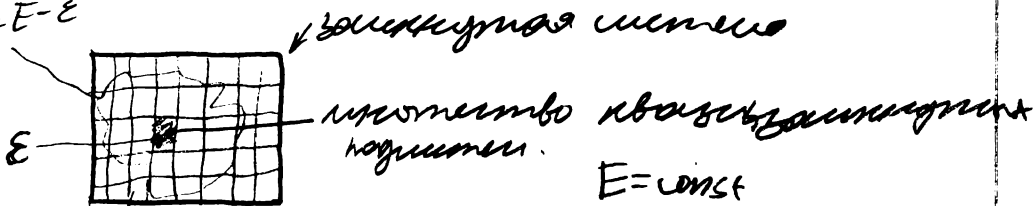 E-ε
замкнутая система
множество квазизамкнутых
подсистем.
ε
E=const